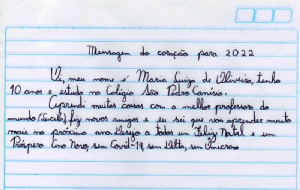 Mensagem do coração para 2022
Oi, meu nome é Maria Luiza de Oliveira, tenho
10 anos e estudo no Colégio São Pedro Canísio.
Aprendi muitas coisas com a melhor professora do
mundo (Sueli), fiz novos amigos e eu sei que vou aprender muito
mais no próximo ano. Desejo a todos um Feliz Natal e um
Próspero Ano Novo, sem Covid-19, sem Delta, sem Ômicron